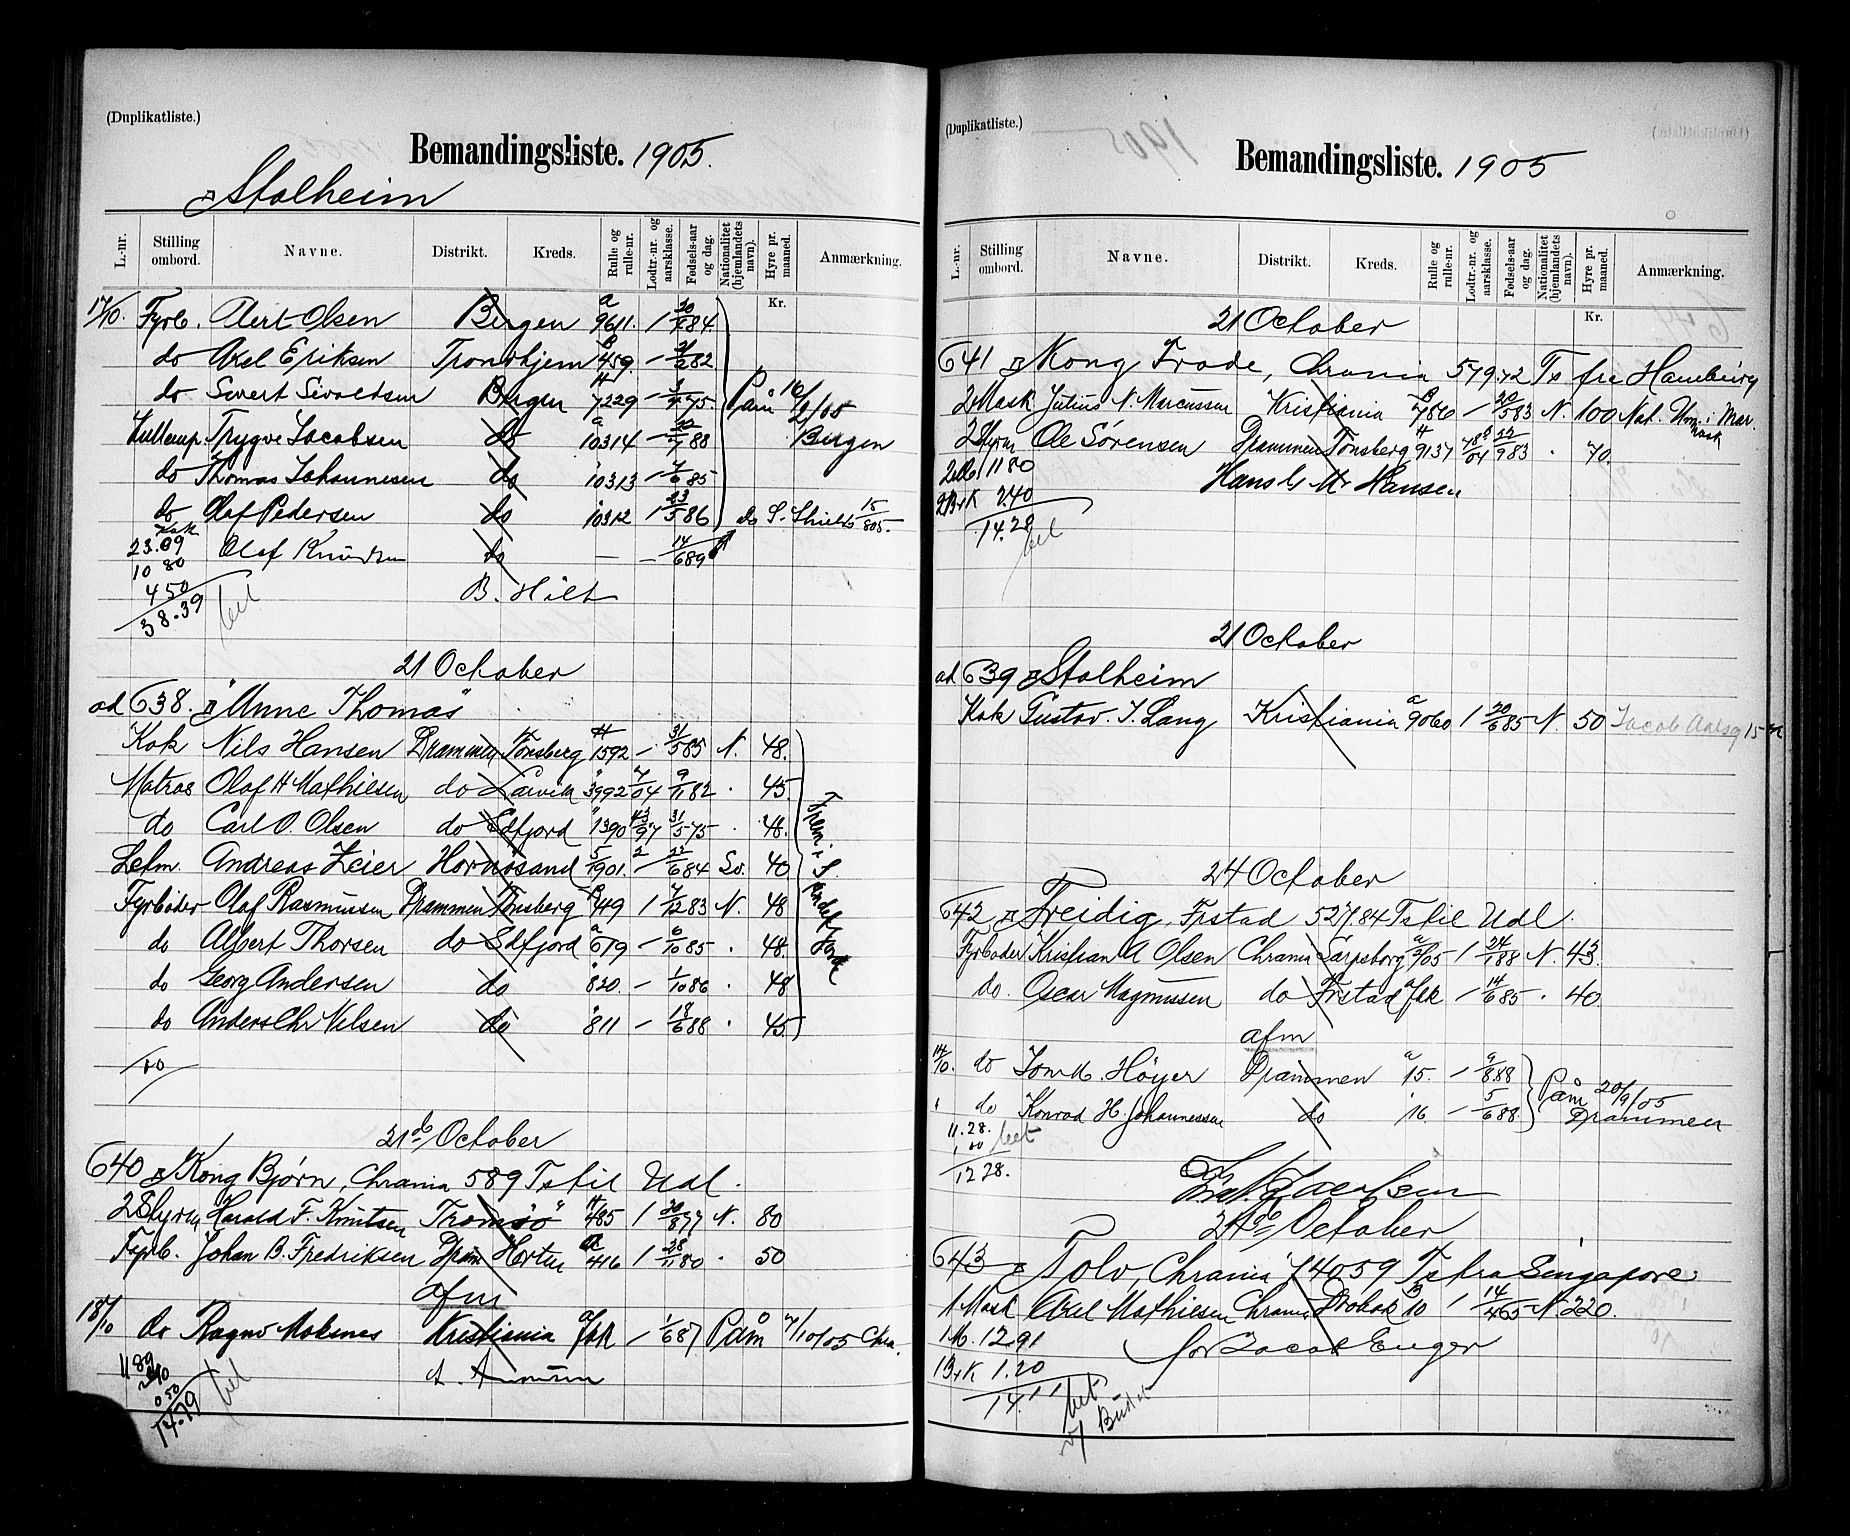 (Duplikatliste.)
Bemandingsliste. 1905.
Stalheim
L.-nr. Stilling ombord. Navne. Distrikt. Kreds. Rulle og rulle-nr. Lodtr.-nr. og aarsklasse. Fødsels-aar og dag. Nationalitet (hjemlandets navn). Hyre pr. maaned. Anmærkning.
Kr.
17/10. Fyrb. Alert Olsen Bergen a 9611. 1 20/4 84.
do Axel Eriksen Trondhjem 459. - 21/2 82
do Sivert Sivaldsen Bergen 7229 - 75. Påm 10/2/05
Trygve Jacobsen do a 10314 - 22/7 88 Bergen
do Thomas Johannesen do " 10313 - 1/6 85
do Olaf Pedersen do " 10312 1 23/5 86 do S. Shields 15/8 05.
Kok Olaf Knudsen do — - 14/6 89
23.09
10 80
4 50
38.39 bet
B. Hilt
21 October
ad 638. D "Anne Thomas"
Kok Nils Hansen Drammen Tønsberg 1592 - 31/5 85 N. 48.
Matros Olaf H Mathiesen do Larvik " 3992 7/04 9/11 82 · 45.
do Carl O. Olsen do Edfjord " 1390 43/97 31/5 75 · 48.
Lefm. Andreas Zeier Hornösand 5/1901. 2 - 22/6 84 Sv. 40.
Fyrbøder Olaf Rasmussen Drammen Tønsberg 449 1 7/12 83 N. 48
do Albert Thorsen do Edfjord a 619 - 6/10 85 · 48.
do Georg Andersen do " 820. - 1/10 86 · 48
do Anders Chr Nilsen do " 811 - 18/6 88 · 45.
21de October
640 D Kong Bjørn, Chrania 589 Ts til Udl.
2 Styrm, Harald F. Knutsen Tromsö 485 1 20/8 77 N. 80
Fyrb. Johan B. Fredriksen Dram Horten a 416 1 28/11 80 · 50
afm
18/10 do Ragnv Moksnes Kristiania a fbk - 1/6 87 Påm 7/10/05 Chra.
11 89
2 40
0 50
14.79 bet
(Duplikatliste.)
Bemandingsliste. 1905
L.-nr. Stilling ombord. Navne. Distrikt. Kreds. Rulle og rulle-nr. Lodtr.-nr. og aarsklasse. Fødsels-aar og dag. Nationalitet (hjemlandets navn). Hyre pr. maaned. Anmærkning.
Kr.
21 October
641 D Kong Frode, Chrania 579.72 Ts fra Hamburg
2 Mask Julius N. Marcussen Kristiania 786 - 20/5 83 N. 100
2 Styrm Ole Sørensen Drammen Tønsberg 9137 788/04 22/9 83 · 70.
11 80
2.40
14.20 bet
21 October
ad 639 D Stalheim
Kok Gustav. J. Lang Kristiania a 9060 1 20/6 85 N. 50
24 October
642 D Freidig, Frstad 527.84 Ts til Udl.
Fyrbøder Kristian A Olsen Chrania Sarpsborg 1 24/1 88 N. 43.
do. Oscar Magnussen do Frstad a fbk - 14/6 85 · 40
afm
14/10. do Høyer Drammen a 15. - 9/8 88 Påm 20/9/05
" do Konrad H. Johannessen do " 16. - 5/6 88 Drammen
11.28.
1.00 bet
12 28.
24de October
643 D Tolv, Chrania 74059 Ts fra Singapore
1 Mask Axel Mathiesen Chrania Drøbak 10 1 14/4 65 N 220.
1 M. 12.91
1 B+K 1.20
14.11 bet
for Jacob Enger